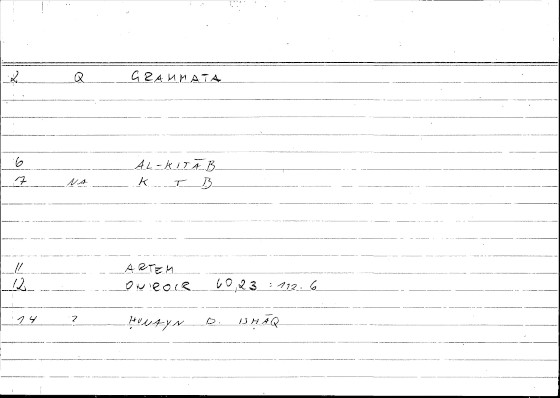 2 Q GRAMMATA
6 AL-KITĀB
7 NA K T B
11 ARTEM
12 ONIROCR 60,23 : 112.6
14 ? ḤUNAYN B. ISḤĀQ